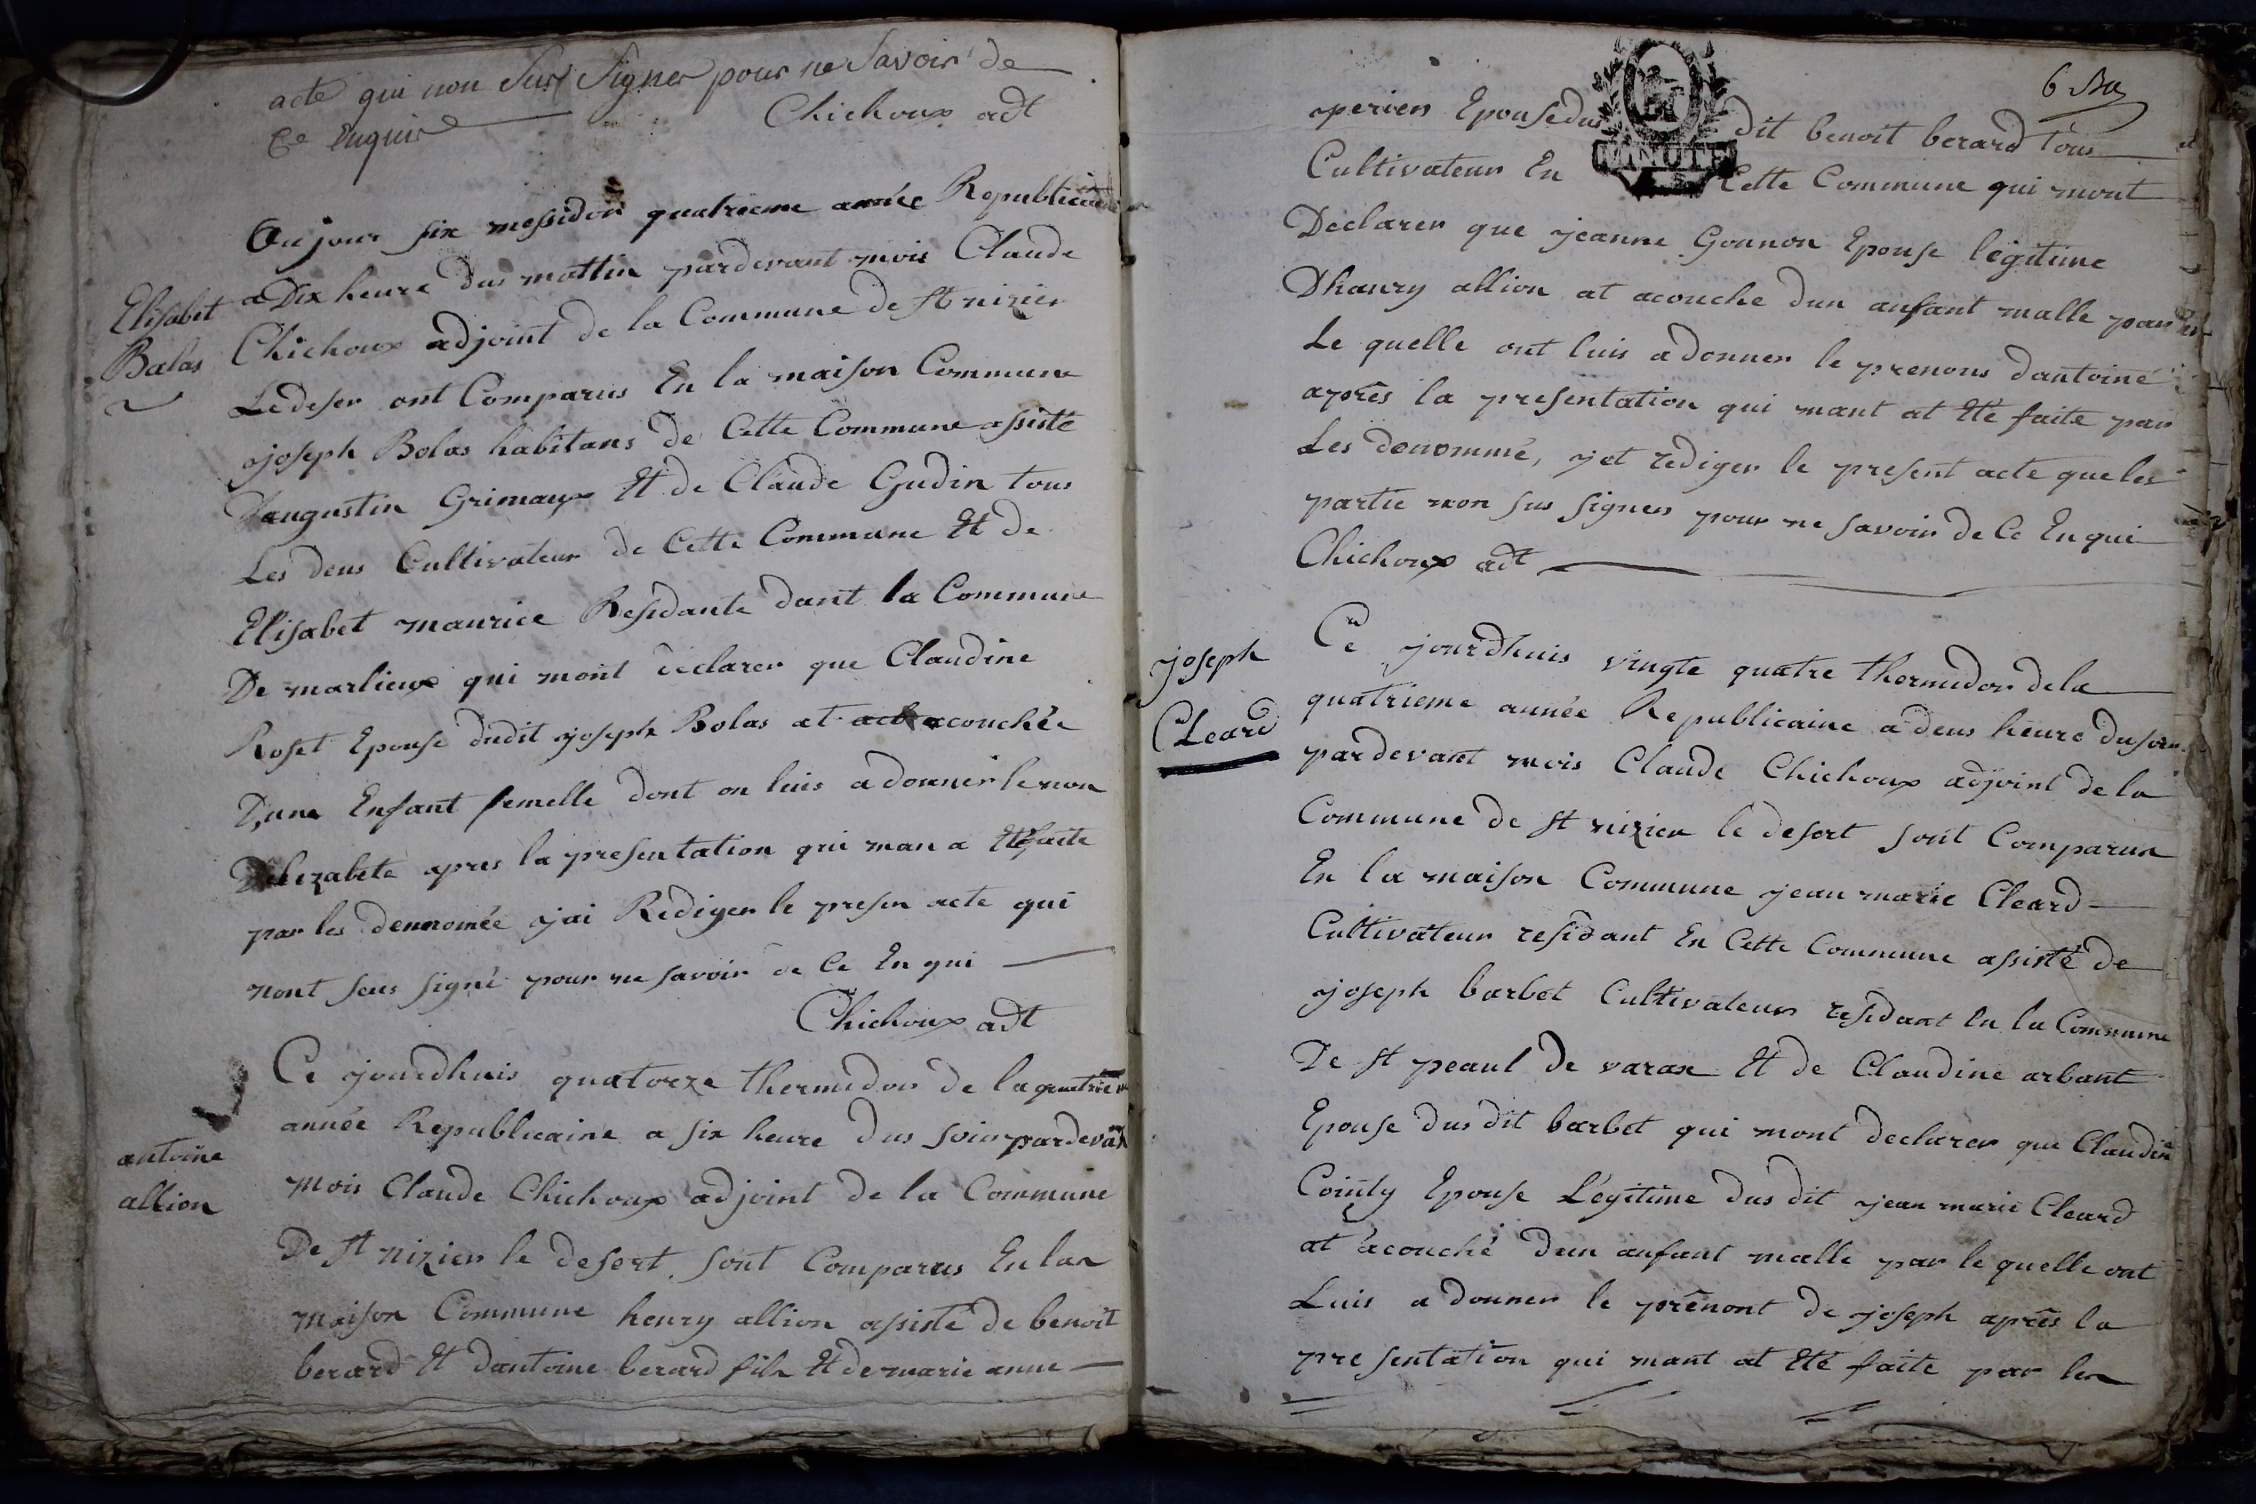 acte qui non Sus Signer pour ne Savoir de
Ce Enquis
Chichoux adt
Elisabet
Balas
Aujour six messidor quatrieme année Republicaine
a Dix heure dus mattin pardevant mois Claude
Chichoux adjoint de la Commune de St nizier
Ledeser ont Comparus En la maison Commune
joseph Bolas habitans de Cette Commune assisté
Daugustin Grimaux Et de Claude Gudin tous
Les deus Cultivateur de Cette Commune Et de
Elisabet maurice Residante dant la Commune
De marlieux qui mont déclarer que Claudine
Roset Epouse dudit joseph Bolas at acouchée
Dune Enfant femelle dont on luis a donner le non
Delezabete apres la presentation qui man a Eté faite
par les dennomée jai Rediger le presen acte qui
nont seus signé pour ne savoir de Ce En qui
Chichoux adt
antoine
allion
Ce jourdhuis quatorze thermidor de la quatrieme
année Republicaine a six heure dus soir pardevan
mois Claude Chichoux adjoint de la Commune
De St nizier le desert sont Comparus En la
maison Commune henry allion assisté de benoit
berard Et dantoine berard fils Et de marie anne
6 Ba
perier Epouse dus dit benoit berard tous
MINUTE
Cultivateur En Cette Commune qui mont
Declarer que jeanne Gonnon Epouse légitime
Dhanry allion at acouche dun anfant malle par
Le quelle ont luis a donner le prenons dantoine
après la presentation qui mant at Eté faite par
Les denommé, jet rediger le present acte que les
partie non sus signer pour ne savoir de Ce En qui
Chichoux adt
joseph
Cleard
Ce jourdhuis vingte quatre thermidor de la
quatrieme année Republicaine a deus heure du soir
pardevant mois Claude Chichoux adjoint de la
Commune de St nizier le desert sont Comparus
En la maison Commune jean marie Cleard
Cultivateur residant En Cette Commune assisté de
joseph barbet Cultivateur residant En la Commune
De St peaul de varax Et de Claudine arbant
Epouse dus dit barbet qui mont declarer que Claudine
Cointy Epouse Légitime dus dit jean marie Cleard
at acouché dun anfant malle par le quelle ont
Luis a donner le prénont de joseph après la
presentation qui mant at Eté faite par les